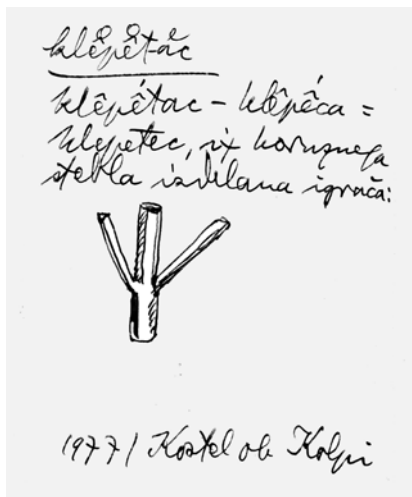 klȇpȇtǝc
klȇpétac – klȇpéca =
klepetec, ix koruznega
stebla izdelana igrača:
1977 / Kostel ob Kolpi